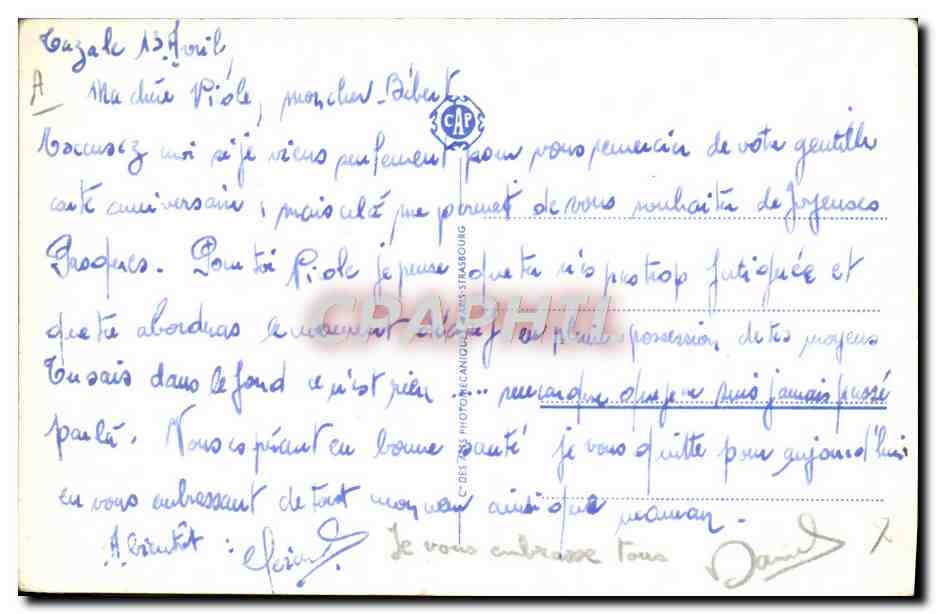 13 Avril,
A
Ma chère Viole, mon cher Bébert
CAP
Excusez moi si je viens seulement pour vous remercier de votre gentille
carte anniversaire, mais cela me permet de vous souhaiter de Joyeuses
Pâques. Pour toi Viole je pense que tu n'es pas trop fatiguée et
que tu aborderas le moment en pleine possession de tes moyens
Tu sais dans le fond ce n'est rien .... que je ne suis jamais passé
par là. Vous espérant en bonne santé je vous quitte pour aujourd'hui
en vous embrassant de tout mon cœur ainsi que maman.
A bientôt :
Je vous embrasse tous
Daniel
Cie DES ARTS PHOTOMÉCANIQUES - PARIS-STRASBOURG
CPAPHIL